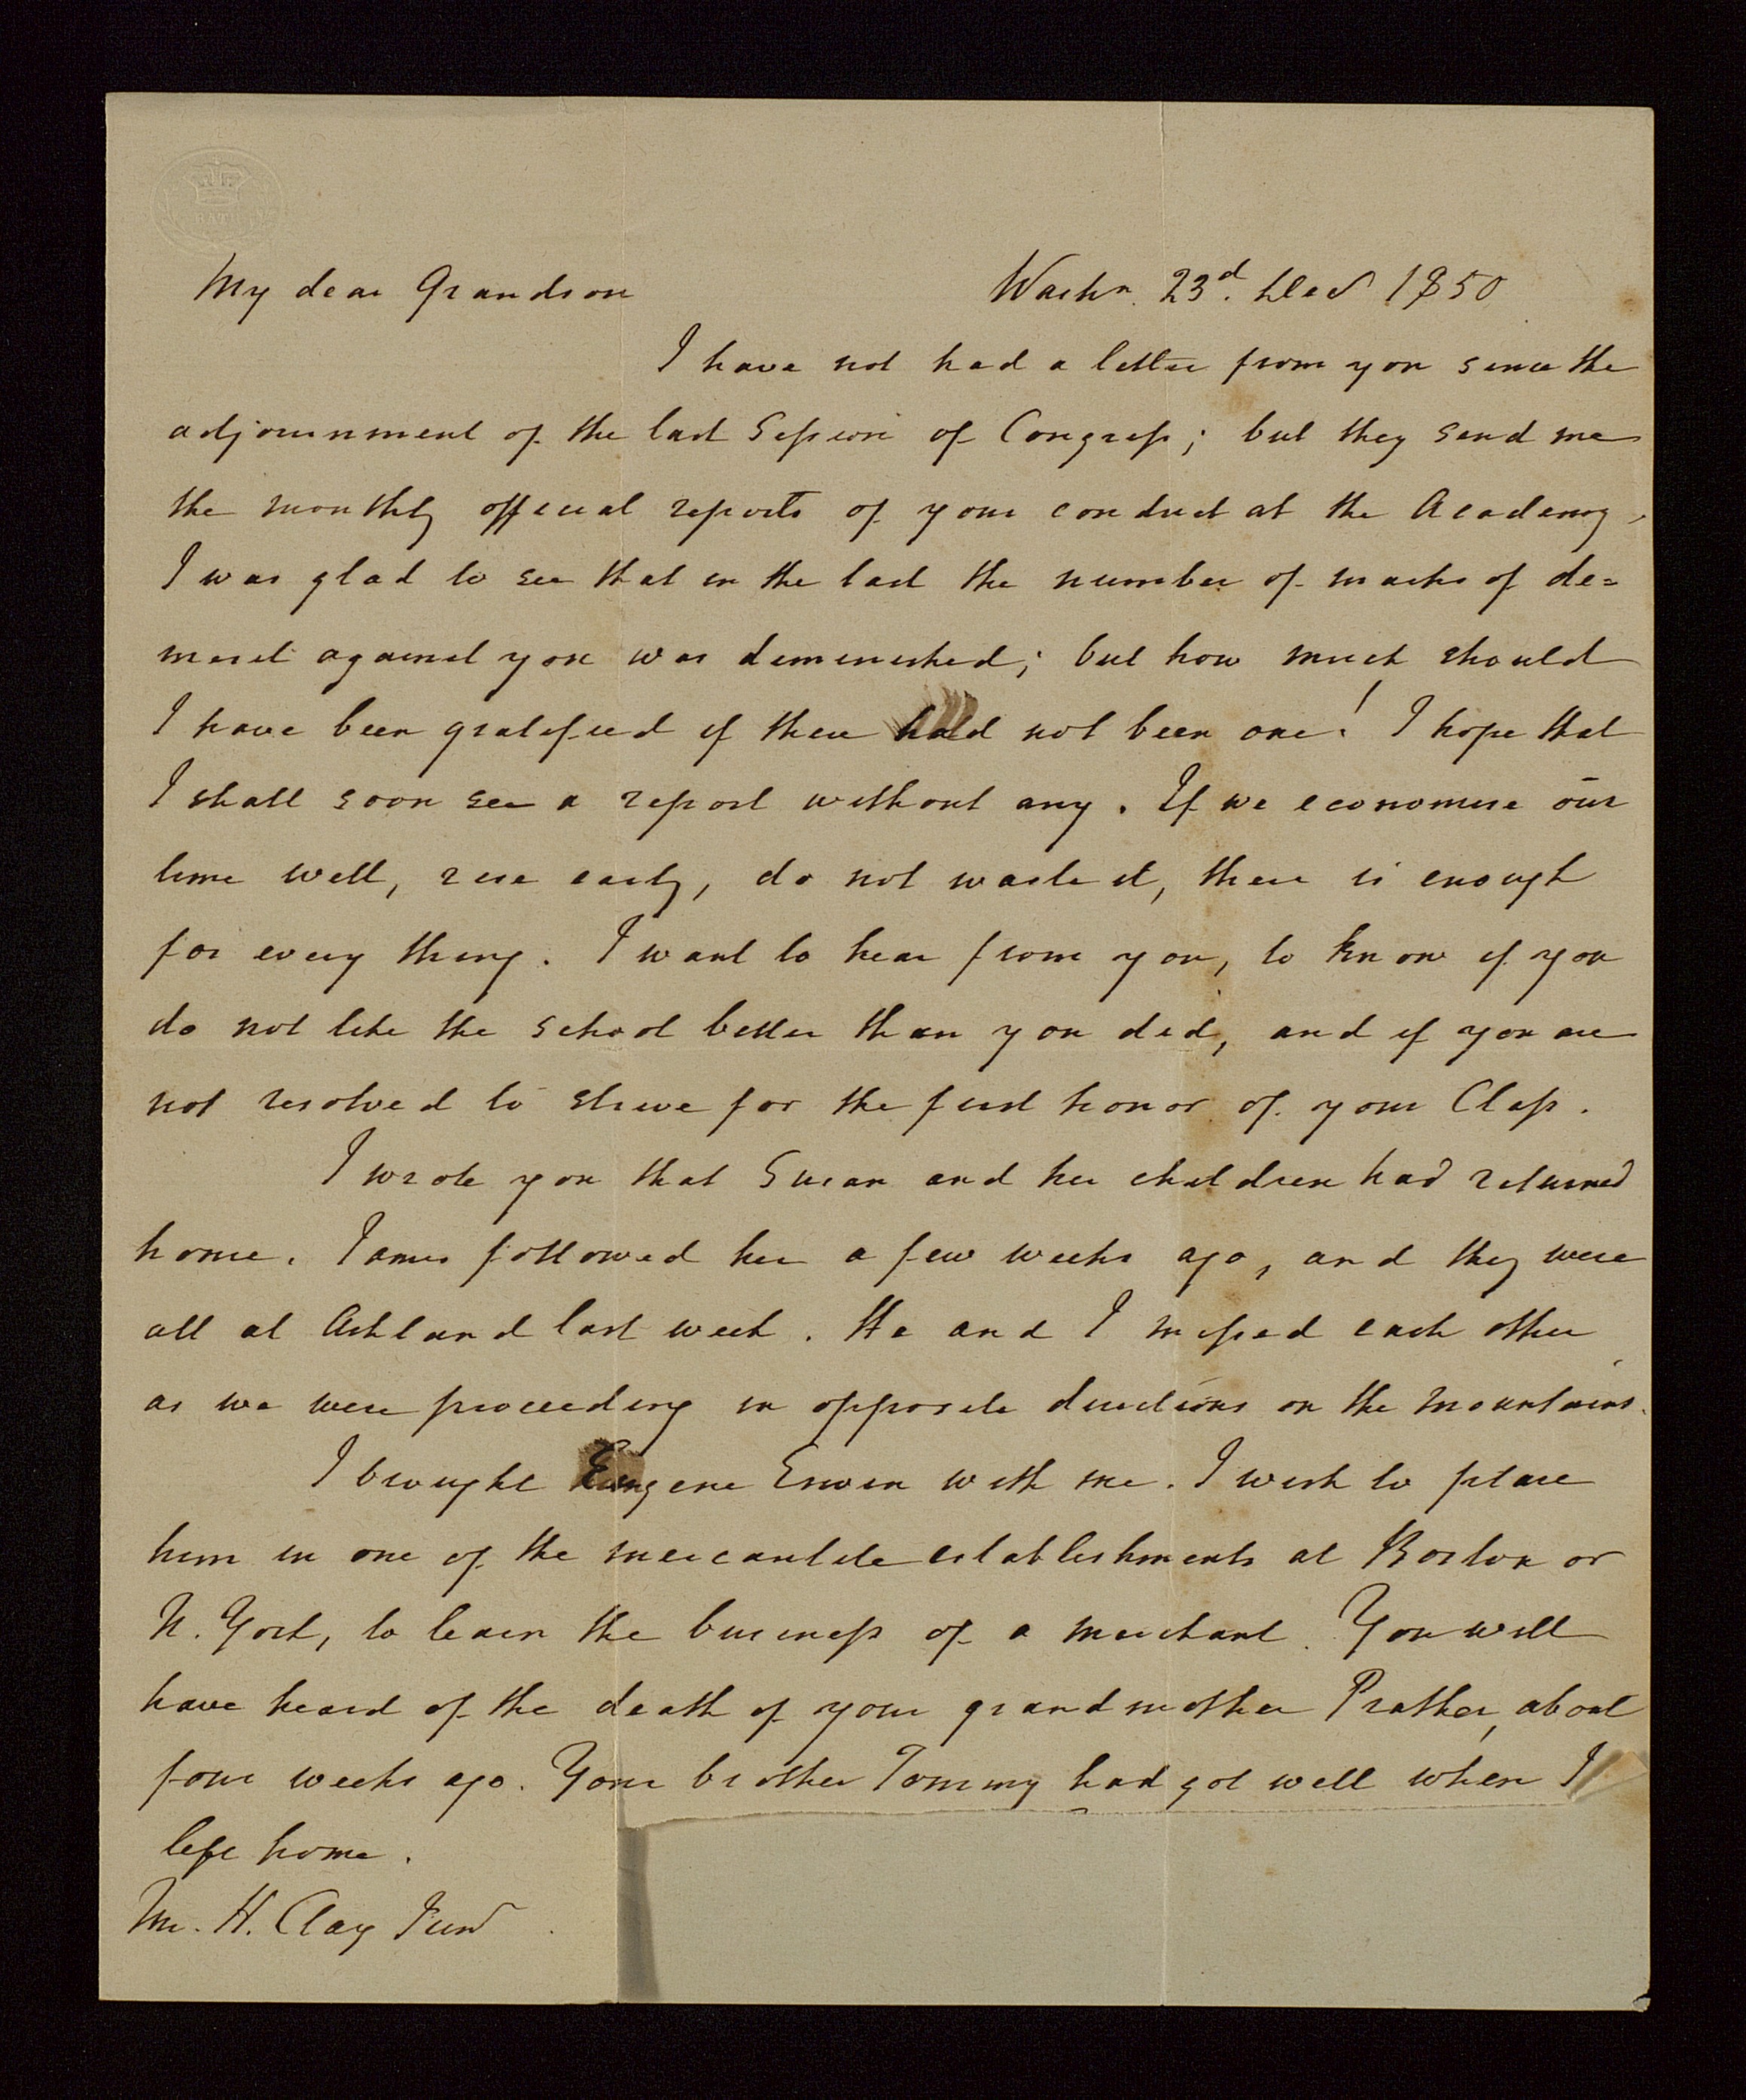 My dear Grandson Washn. 23d. Decr 1850
I have not had a letter from you since the
adjournment of the last Session of Congress; but they send me
the monthly official reports of your conduct at the Academy.
I was glad to see that in the last the number of marks of de=
merit against you was diminished; but how much should
I have been gratified if there had not been one! I hope that
I shall soon see a report without any. If we economise our
time well, rise early, do not waste it, there is enough
for every thing. I want to hear from you, to know if you
do not like the school better than you did, and if you are
not resolved to strive for the first honor of your Class.
I wrote you that Susan and her children had returned
home. James followed her a few weeks ago, and they were
all at Ashland last week. He and I missed each other
as we were proceeding in opposite directions on the mountains.
I brought Eugene Erwin with me. I wish to place
him in one of the mercantile establishments at Boston or
N. York, to learn the business of a merchant. You will
have heard of the death of your grandmother Prather, about
four weeks ago. Your brother Tommy had got well when I
left home.
Mr. H. Clay Junr